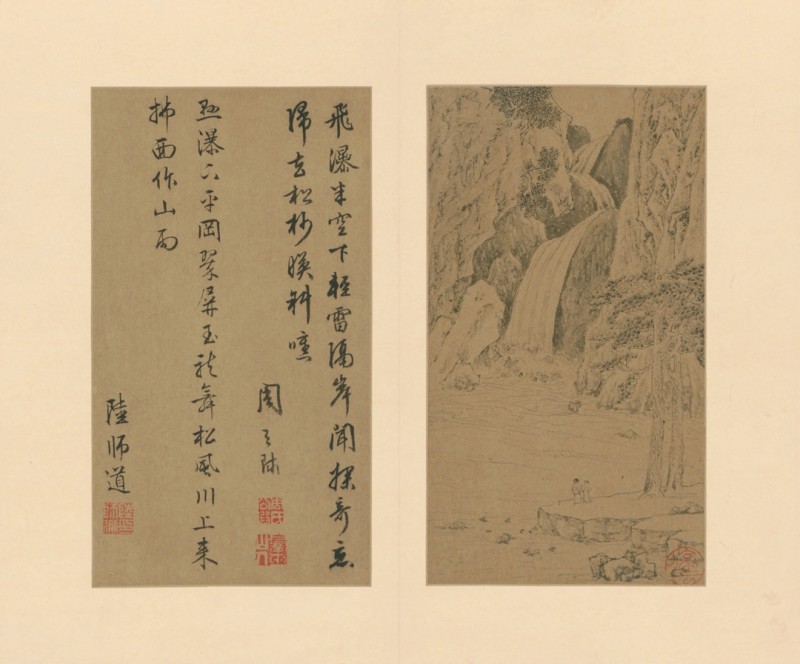 飛瀑半空下輕雷隔岸聞探奇忘
歸去松杪暎斜曛
周天球
懸瀑下平岡翠屏玉龍舞松風川上來
拂面作山雨
陸師道